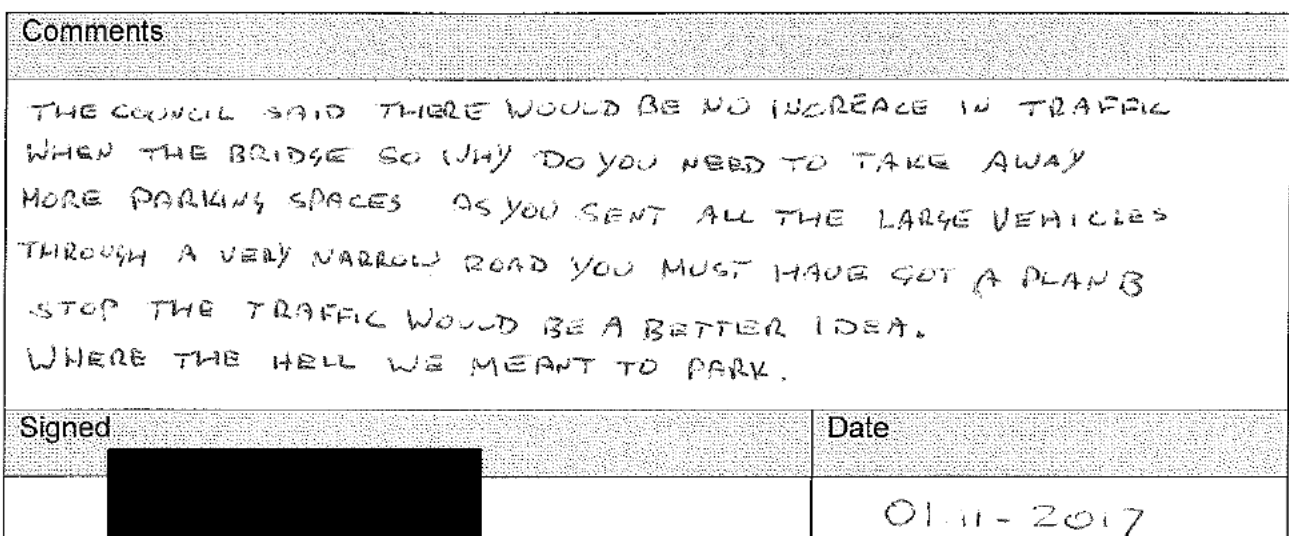 Comments
THE COUNCIL SAID THERE WOULD BE NO INCREACE IN TRAFFIC
WHEN THE BRIDGE SO WHY DO YOU NEED TO TAKE AWAY
MORE PARKING SPACES AS YOU SENT ALL THE LARGE VEHICLES
THROUGH A VERY NARROW ROAD YOU MUST HAVE GOT A PLAN B
STOP THE TRAFFIC WOULD BE A BETTER IDEA.
WHERE THE HELL WE MEANT TO PARK.
Signed
Date
01-11-2017